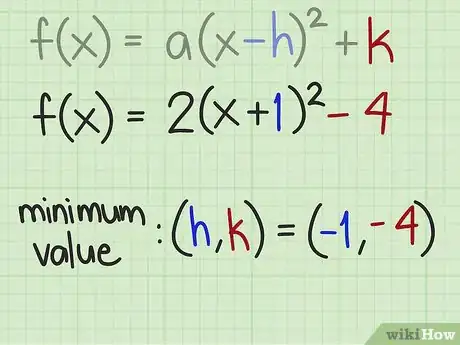 f(x) = a(x-h)² + k
f(x) = 2(x+1)² - 4
minimum
value : (h,k) = (-1,-4)
wikiHow